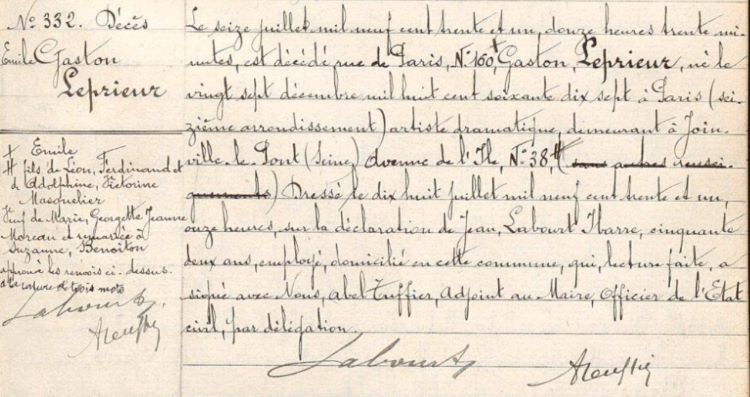 N° 332. Décès
Emile Gaston
Leprieur
+ Emile
# fils de Léon, Ferdinand et
d'Adolphine, Victorine
Masquelier
Veuf de Marie, Georgette Jeanne
Moreau et remarié à
Suzanne, Benoiton
approuvé les renvois ci-dessus.
et la rature de trois mots
Labourt
Le seize juillet mil neuf cent trente et un, douze heures trente mi-
nutes, est décédé rue de Paris, N° 160, + Gaston, Leprieur, né le
vingt sept décembre mil huit cent soixante dix sept à Paris (sei-
zième arrondissement) artiste dramatique, demeurant à Join-
ville-le-Pont (Seine) Avenue de l'Ile, N° 38, # (sans autres rensei-
gnements) Dressé le dix huit juillet mil neuf cent trente et un,
onze heures, sur la déclaration de Jean, Labourt Ibarre, cinquante
deux ans, employé, domicilié en cette commune, qui, lecture faite, a
signé avec Nous, Abel Truffier, Adjoint au Maire, Officier de l'Etat
civil, par délégation.
Labourt